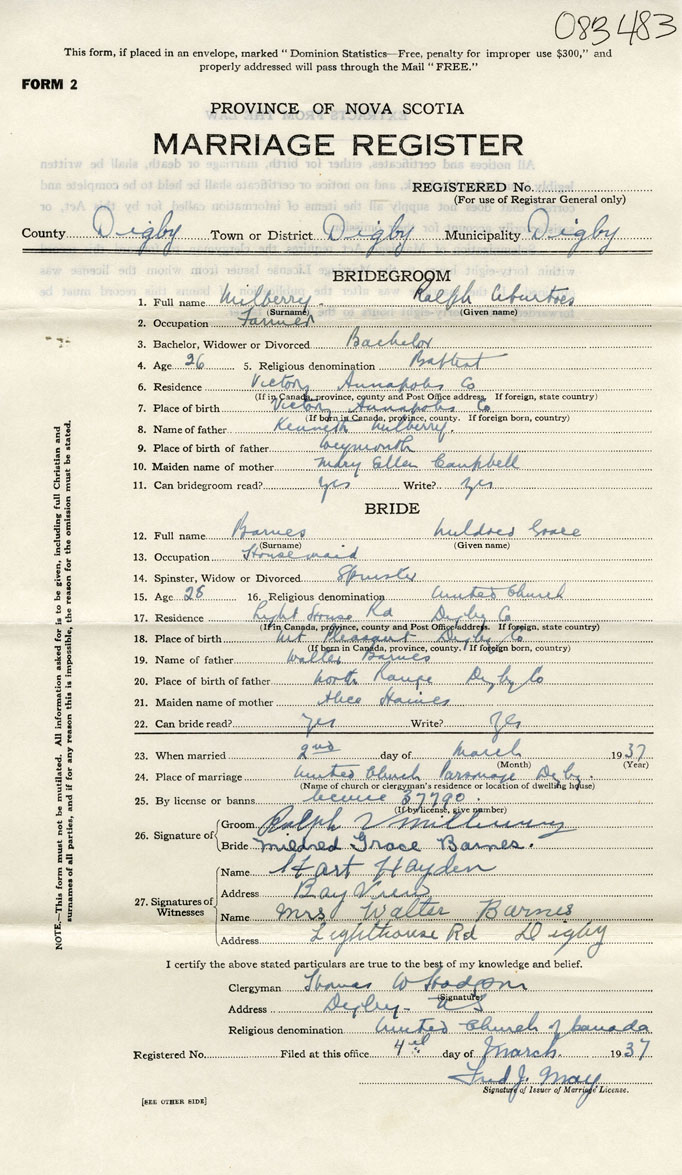 083483
This form, if placed in an envelope, marked "Dominion Statistics—Free, penalty for improper use $300," and
properly addressed will pass through the Mail "FREE."
FORM 2
PROVINCE OF NOVA SCOTIA
MARRIAGE REGISTER
REGISTERED No.
(For use of Registrar General only)
County Digby Town or District Digby Municipality Digby
BRIDEGROOM
1. Full name Milberry Ralph
(Surname) (Given name)
2. Occupation Farmer
3. Bachelor, Widower or Divorced Bachelor
4. Age 26 5. Religious denomination Baptist
6. Residence Victory Annapolis Co
(If in Canada, province, county and Post Office address. If foreign, state country)
7. Place of birth Victory Annapolis Co
(If born in Canada, province, county. If foreign born, country)
8. Name of father Kenneth Milberry.
9. Place of birth of father Weymouth
10. Maiden name of mother Mary Ellen Campbell
11. Can bridegroom read? yes Write? yes
BRIDE
12. Full name Barnes Mildred Grace
(Surname) (Given name)
13. Occupation Housemaid
14. Spinster, Widow or Divorced Spinster
15. Age 28 16. Religious denomination United Church
17. Residence Light House Rd Digby Co
(If in Canada, province, county and Post Office address. If foreign, state country)
18. Place of birth Mt Pleasant Digby Co
(If born in Canada, province, county. If foreign born, country)
19. Name of father Walter Barnes
20. Place of birth of father North Range Digby Co
21. Maiden name of mother Alice Haines
22. Can bride read? yes Write? yes
23. When married 2nd day of March 1937
(Month) (Year)
24. Place of marriage United Church Parsonage Digby.
(Name of church or clergyman's residence or location of dwelling house)
25. By license or banns License 57790.
(If by license, give number)
26. Signature of Groom Ralph V Milberry
Bride Mildred Grace Barnes.
27. Signatures of Witnesses
Name Hayden
Address Bay View
Name Mrs Walter Barnes
Address Lighthouse Rd Digby
I certify the above stated particulars are true to the best of my knowledge and belief.
Clergyman Thomas W Hodgson
(Signature)
Address Digby - NS
Religious denomination United Church of Canada
Registered No. Filed at this office 4th day of March. 1937
Fred J. May
Signature of Issuer of Marriage License.
[SEE OTHER SIDE]
NOTE.—This form must not be mutilated. All information asked for is to be given, including full Christian and
surnames of all parties, and if for any reason this is impossible, the reason for the omission must be stated.